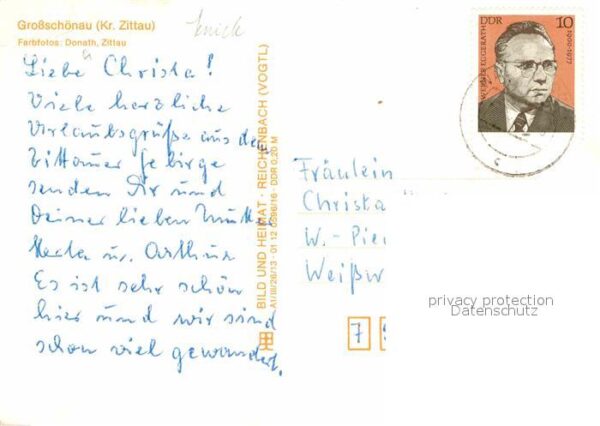 Großschönau (Kr. Zittau)
Farbfotos: Donath, Zittau
Liebe Christa!
Viele herzliche
Urlaubsgrüße aus dem
Zittauer Gebirge
senden Dir und
Deiner lieben Mutti
Herta u. Arthur
Es ist sehr schön
hier und wir sind
schon viel gewandert.
BILD UND HEIMAT · REICHENBACH (VOGTL)
A1/III/26/13 · 01 12 0296/16 · DDR 0,20 M
DDR 10
WERNER EGGERATH
1900-1977
Fräulein
Christa
W.-Pie
Weißw
7
privacy protection
Datenschutz